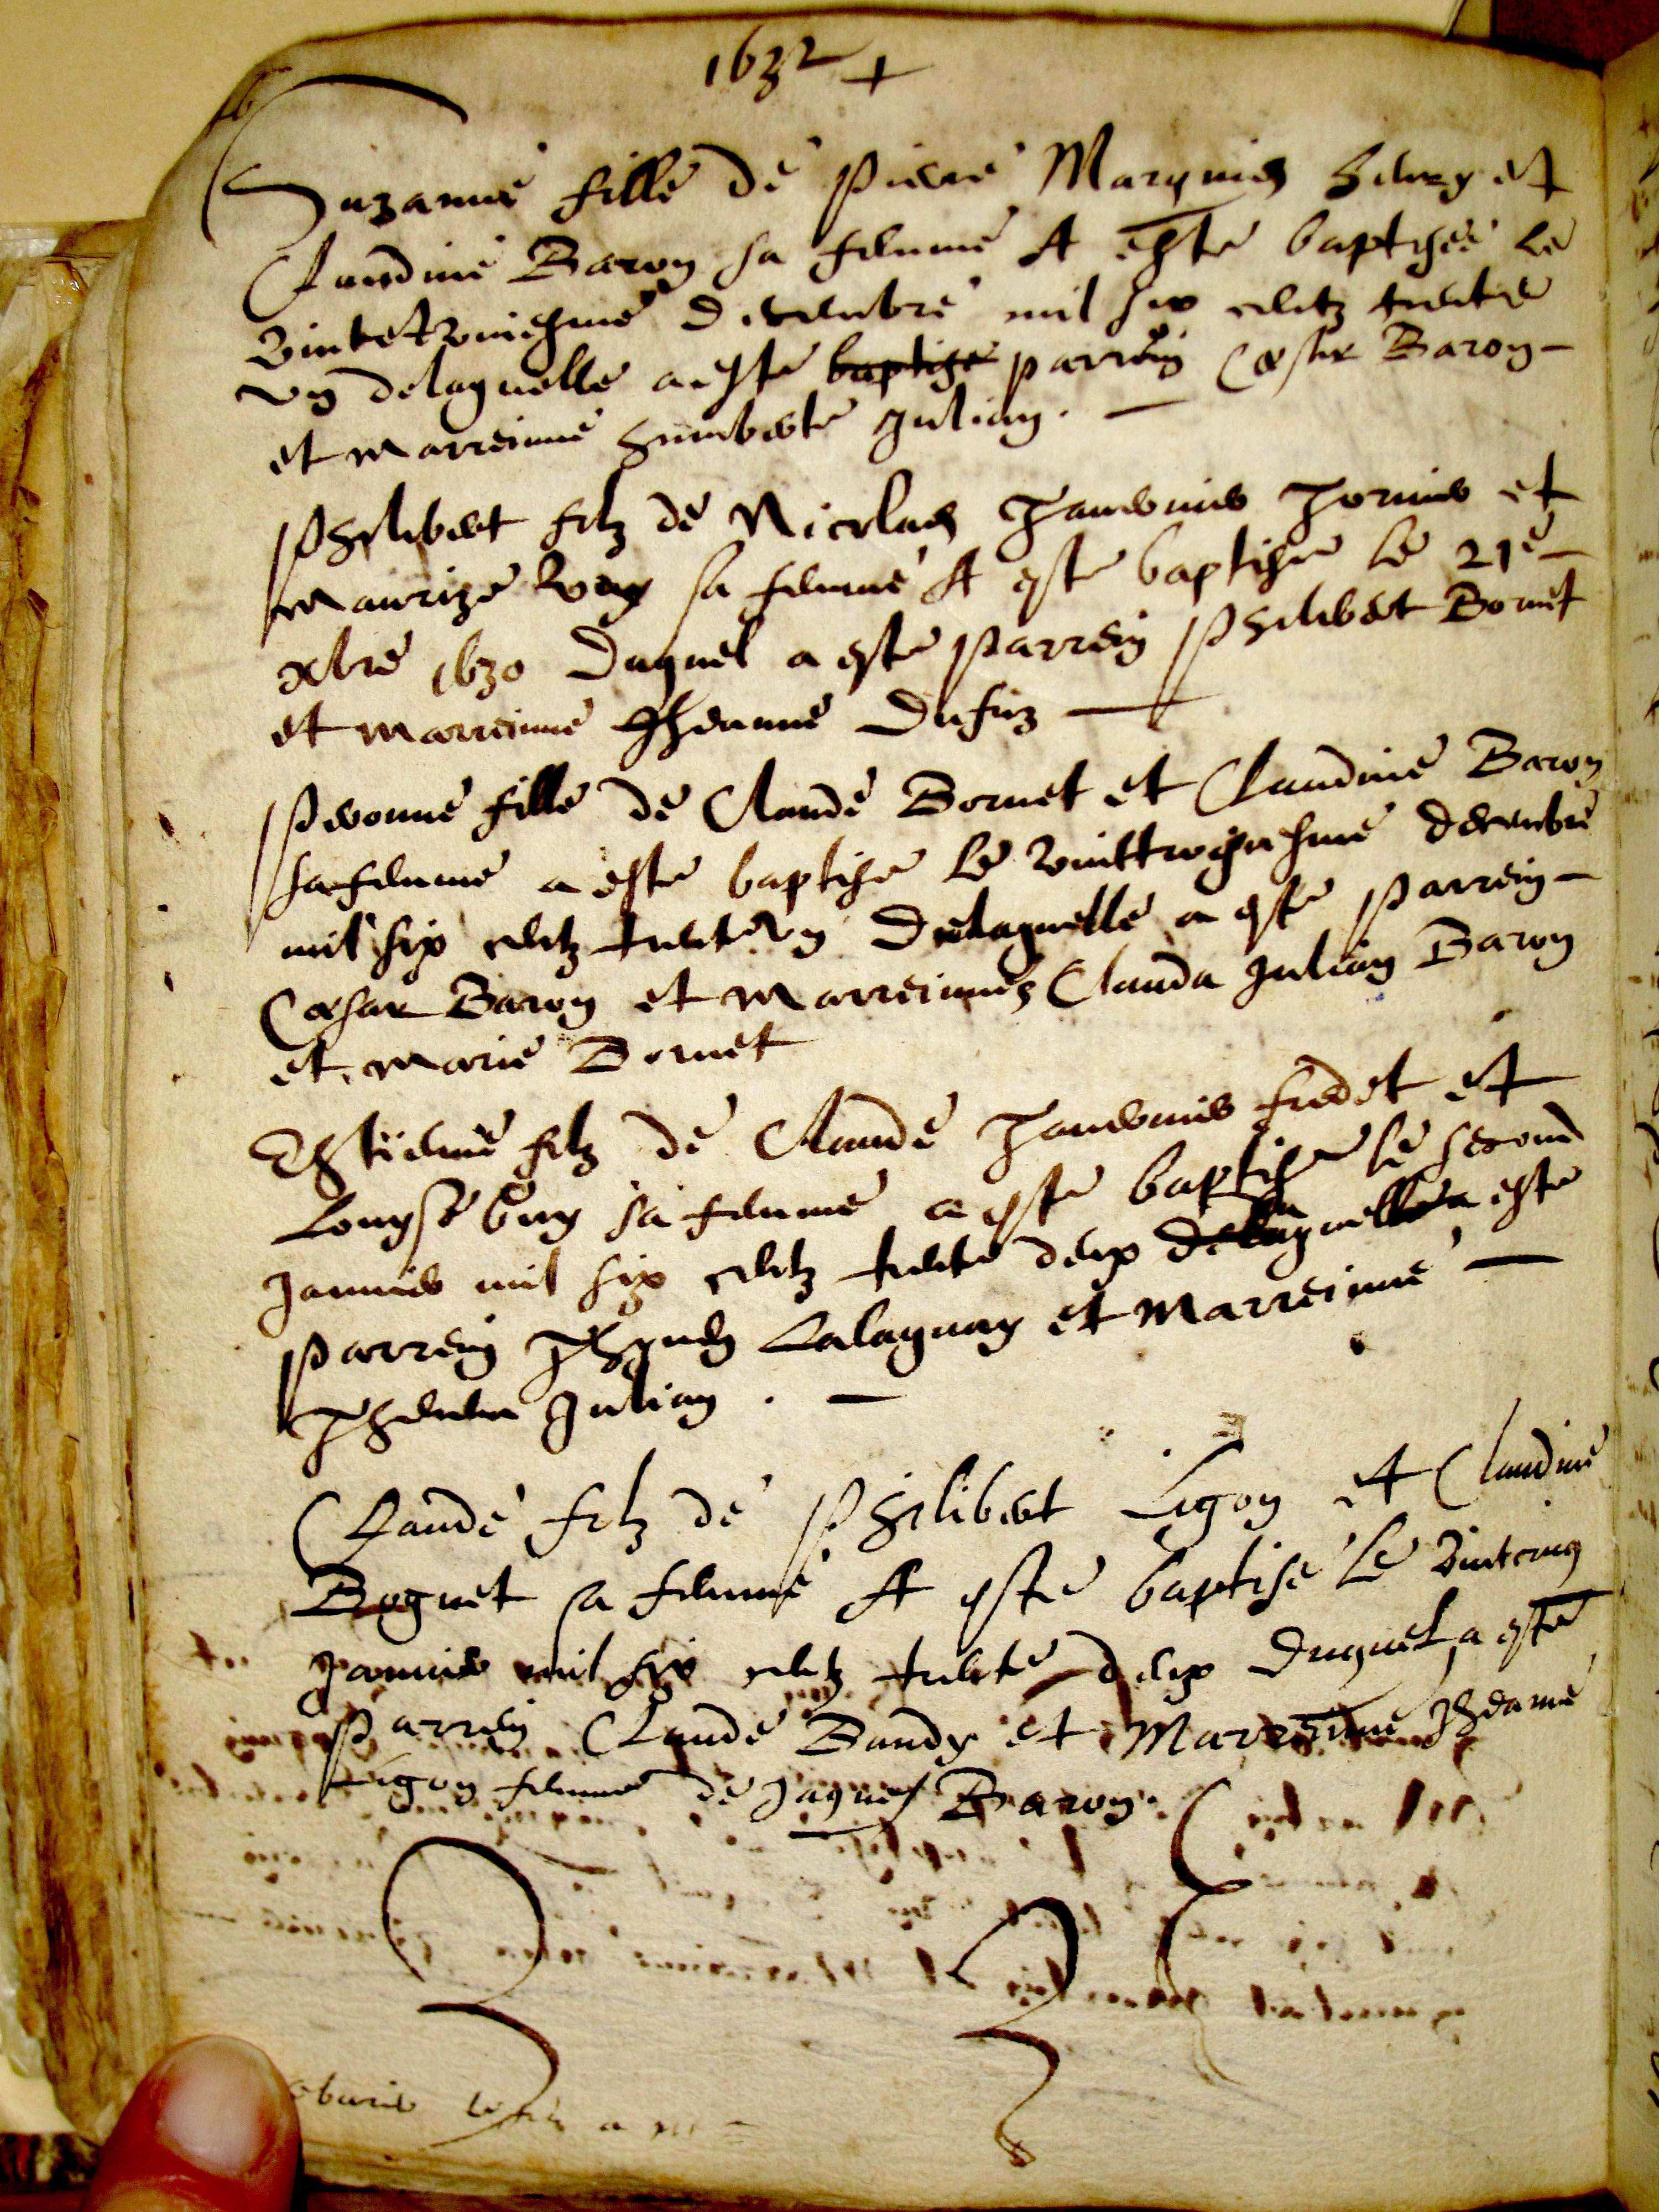 1632
Suzanne fille de Pierre Marquis et
Claudine Baron sa femme A esté baptisée le
vintetroiesme Decembre mil six centz trente
un delaquelle a esté baptisé parrein Cæsar Baron
et marreinne Humberte Julian.
Philibert filz de Nicolas Janvier et
Maurize sa femme A esté baptisé le 21e
xbre 1630 Duquel a esté Parrein Philibert Bornet
et marreinne Jheanne
Pernonne fille de Claude Bornet et Claudine Baron
sa femme a esté baptisé le vinttroysiesme decembre
mil six centz trente Un Delaquelle a esté Parrein
Cæsar Baron et Marreinnes Clauda Julian Baron
et Marie Bornet
Estienne filz de Claude Janvier et
Loyse sa femme a esté baptisé le second
Janvier mil six centz trente deux delaquelle a esté
Parrein Lalaguay et Marreinne
Julian.
Claude filz de Philibert Ligon et Claudine
Boguet sa femme A esté baptisé le vintcinq
Janvier mil six centz trente deux Duquel a esté
Parrein Claude Bandy et Marreine Jheanne
Ligon femme de Jaques Baron.